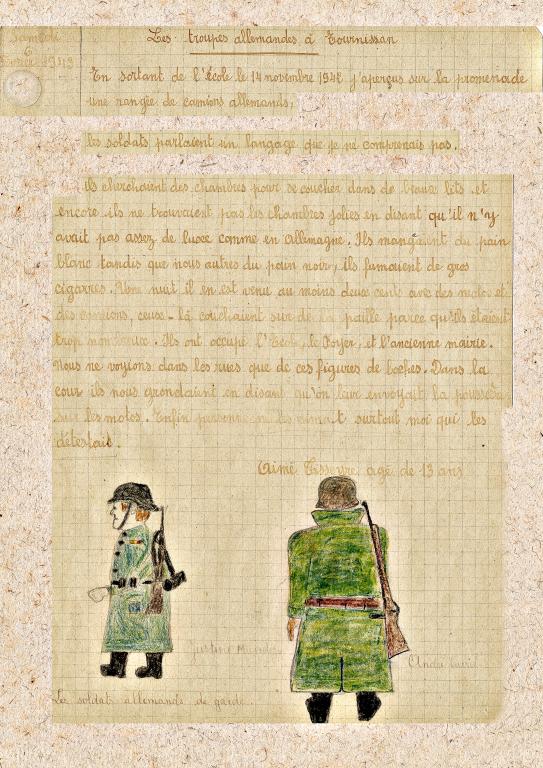 Samedi
6
Février 1943
Les troupes allemandes à Tournissan
En sortant de l'école le 14 novembre 1942 j'aperçus sur la promenade
une rangée de camions allemands,
les soldats parlaient un langage que je ne comprenais pas.
ils cherchaient des chambres pour se coucher dans de beaux lits et
encore ils ne trouvaient pas les chambres jolies en disant qu'il n'y
avait pas assez de luxe comme en Allemagne. Ils mangeaient du pain
blanc tandis que nous autres du pain noir, ils fumaient de gros
cigarres. Une nuit il en est venu au moins deux cents avec des motos et
des camions, ceux-là couchaient sur de la paille parce qu'ils étaient
trop nombreux. Ils ont occupé l'Ecole, le Foyer, et l'ancienne mairie.
Nous ne voyions dans les rues que de ces figures de boches. Dans la
cour ils nous grondaient en disant qu'on leur envoyait la poussière
sur les motos. Enfin personne ne les aimait surtout moi qui les
détestais.
Aimé Tisseyre agé de 13 ans
Justin
André
Les soldats allemands de garde.